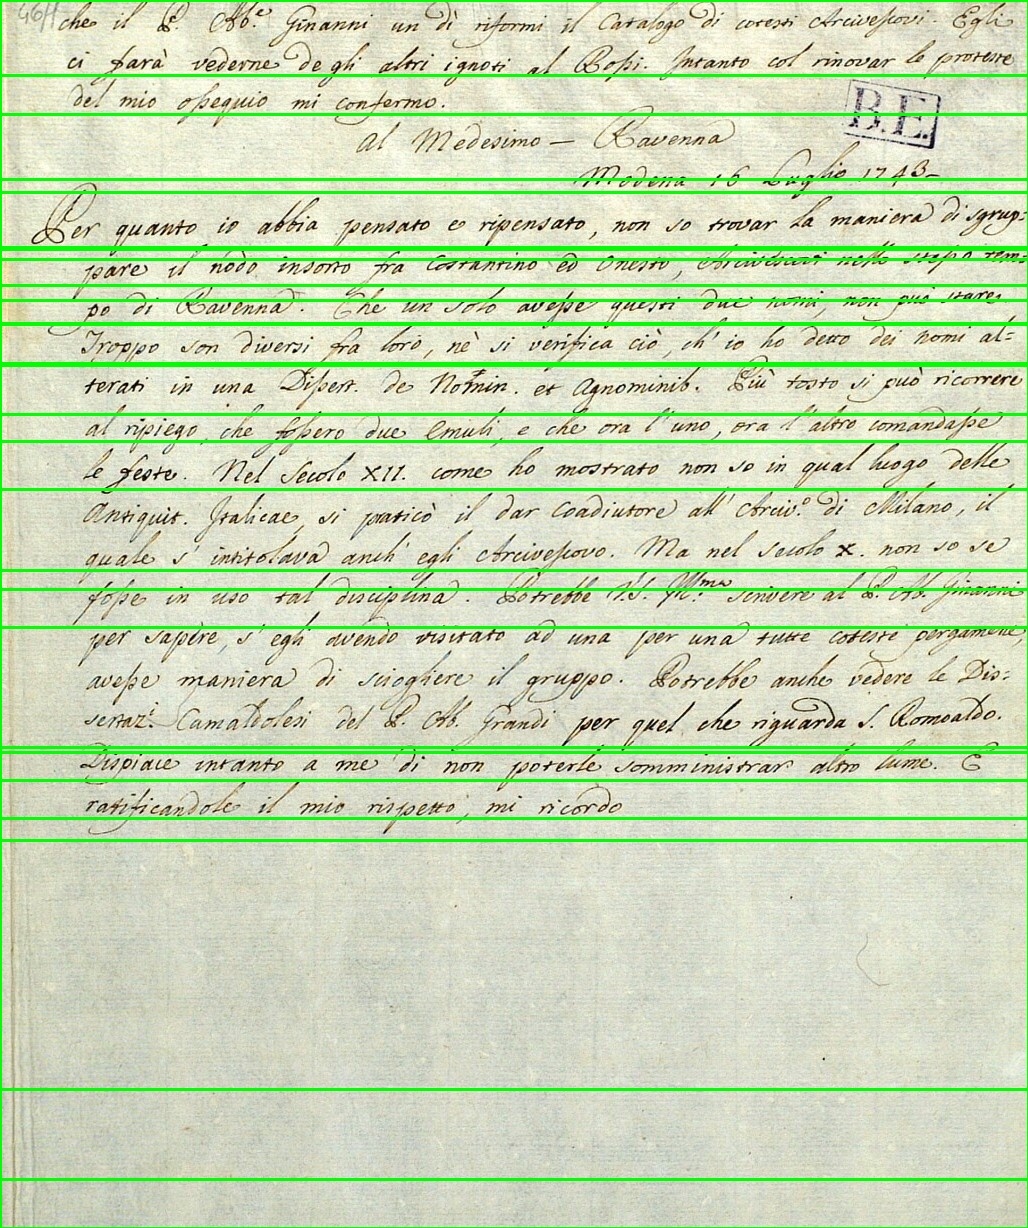 che il P. Ab.e Ginanni un dì riformi il Catalogo di cotesti Arcivescovi. Egli
ci farà vederne degli altri ignoti al Rossi. Intanto col rinovar le proteste
del mio ossequio mi confermo.
B.E.
Al Medesimo — Ravenna
Modena 16 Luglio 1743
Per quanto io abbia pensato e ripensato, non so trovar la maniera di sgrup-
pare il nodo insorto fra Costantino ed Onesto, Arcivescovi nello stesso tem-
po di Ravenna. Che un solo avesse questi due nomi, non può stare.
Troppo son diversi fra loro, nè si verifica ciò, ch' io ho detto dei nomi al-
terati in una Dissert. de Nomin. et Agnominib. Più tosto si può ricorrere
al ripiego, che fossero due Emuli, e che ora l'uno, ora l'altro comandasse
le feste. Nel Secolo XII. come ho mostrato non so in qual luogo delle
Antiquit. Italicae, si praticò il dar Coadiutore all' Arciv.o di Milano, il
quale s' intitolava anch' egli Arcivescovo. Ma nel Secolo X. non so se
fosse in uso tal disciplina. Potrebbe V.S. Ill.ma scrivere al P. Ab. Ginanni
per sapere, s' egli avendo visitato ad una per una tutte coteste pergamene,
avesse maniera di sciogliere il gruppo. Potrebbe anche vedere le Dis-
sertaz.i Camaldolesi del P. Ab. Grandi per quel che riguarda S. Romoaldo.
Dispiace intanto a me di non poterle somministrar altro lume. E
ratificandole il mio rispetto, mi ricordo